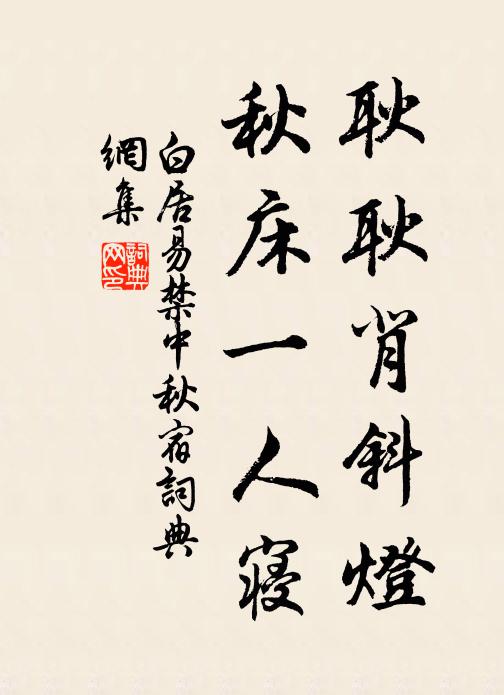 耿耿背斜燈
秋床一人寢
白居易禁中秋宿詞典
網集
詞典网印